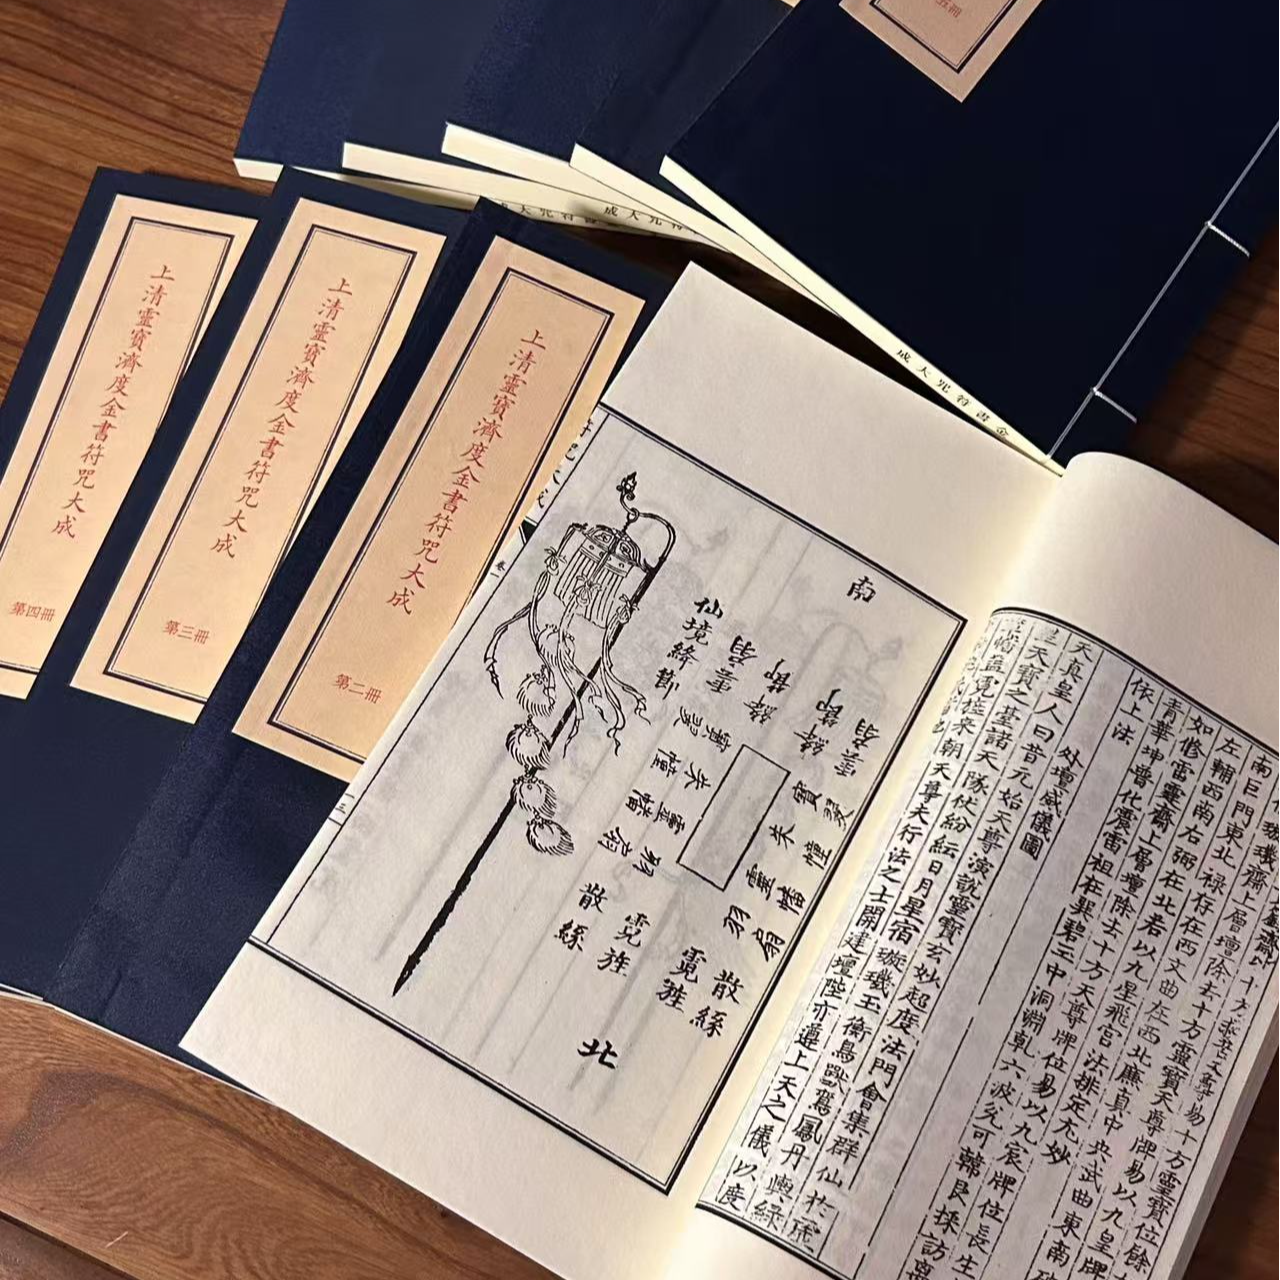 五冊
上清靈寶濟度金書符咒大成
第四冊
上清靈寶濟度金書符咒大成
第三冊
上清靈寶濟度金書符咒大成
第二冊
成大咒符書金
成大咒符
卷一
三
南巨門東北祿存在西文曲在西北廉貞中央武曲東南
左輔西南右弼在北若以九星飛宮法排定尤妙
如修雷霆齋上層壇除去十方天尊牌位易以九宸牌位長生
青華坤普化震雷祖在巽碧玉中洞淵乾六波兌可韓艮採訪离
依上法
外壇威儀圖
天真皇人曰昔元始天尊演說靈寶玄妙超度法門會集群仙於
天寶之臺諸天隊伏紛紜日月星宿璇璣玉衡鳥獸鸞鳳丹輿綠
來朝天尊夫行法之士開建壇陛亦遵上天之儀以度
南
仙境
絳節
寶
朱幢
靈幡
羽扇
霓旌
散絲
霓旌
散絲
北